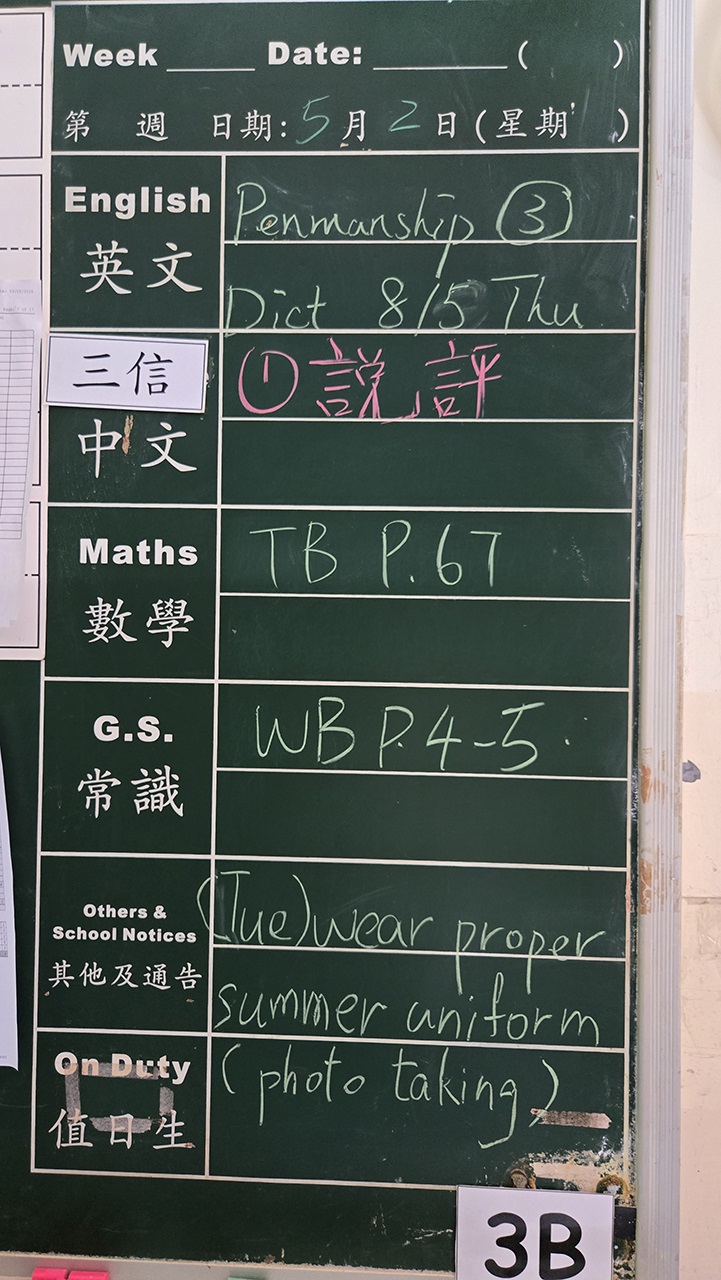 Week ______ Date: __________ (     )
第 週 日期: 5月2日(星期 )
English
英文
Penmanship ③
Dict 8/5 Thu
三信
中文
① 説評
Maths
數學
TB P.67
G.S.
常識
WB P.4-5
Others &
School Notices
其他及通告
(Tue) wear proper
summer uniform
On Duty
值日生
(photo taking)
3B